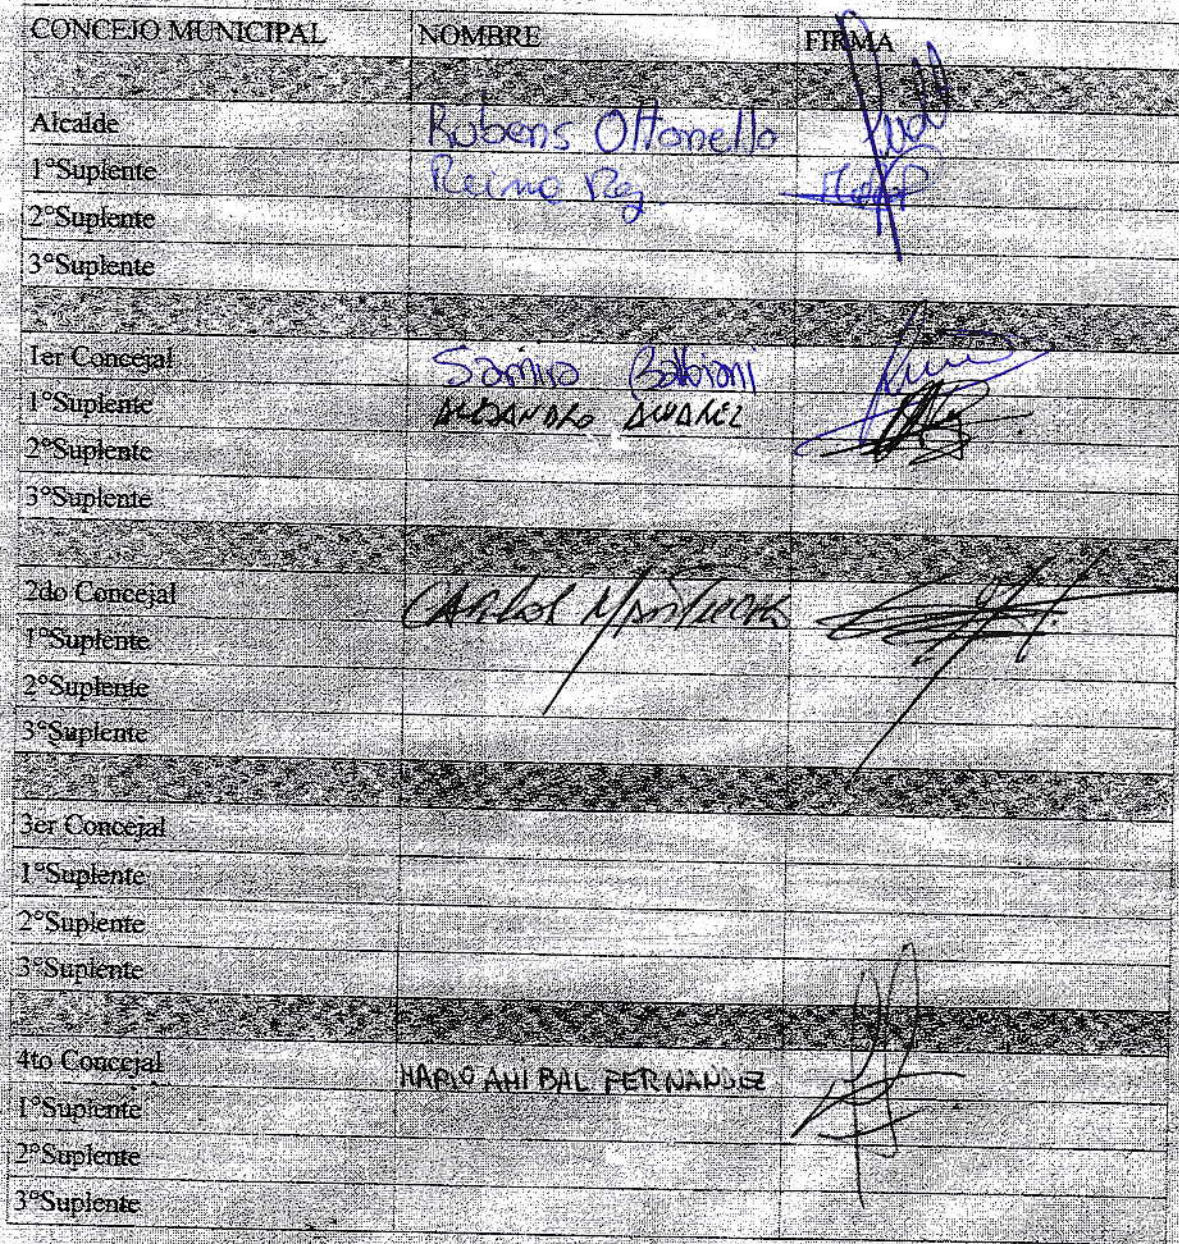 CONCEJO MUNICIPAL NOMBRE FIRMA
Alcalde Rubens Ottonello
1°Suplente
2°Suplente
3°Suplente
1er Concejal Samira Balbiani
1°Suplente ALEJANDRO ALVAREZ
2°Suplente
3°Suplente
2do Concejal CARLOS
1°Suplente
2°Suplente
3°Suplente
3er Concejal
1°Suplente
2°Suplente
3°Suplente
4to Concejal MARIO ANIBAL FERNANDEZ
1°Suplente
2°Suplente
3°Suplente